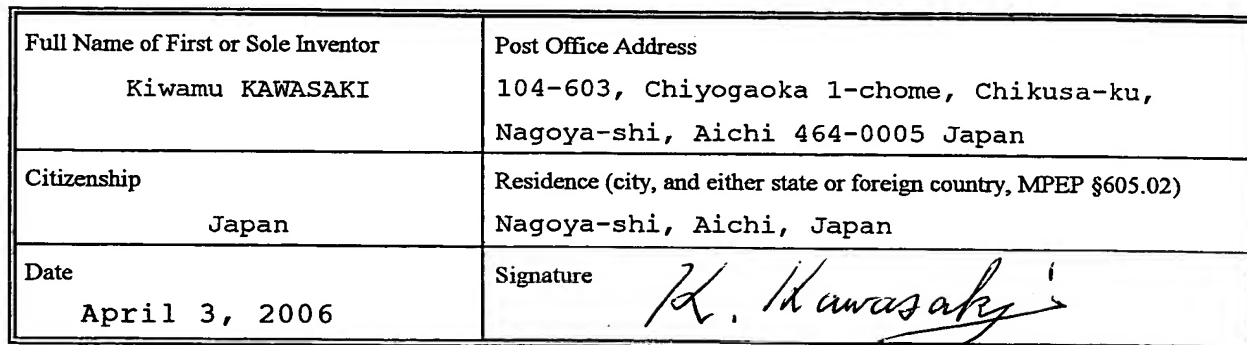 Full Name of First or Sole Inventor
Kiwamu KAWASAKI
Post Office Address
104-603, Chiyogaoka 1-chome, Chikusa-ku,
Nagoya-shi, Aichi 464-0005 Japan
Citizenship
Japan
Residence (city, and either state or foreign country, MPEP §605.02)
Nagoya-shi, Aichi, Japan
Date
April 3, 2006
Signature
K. Kawasaki